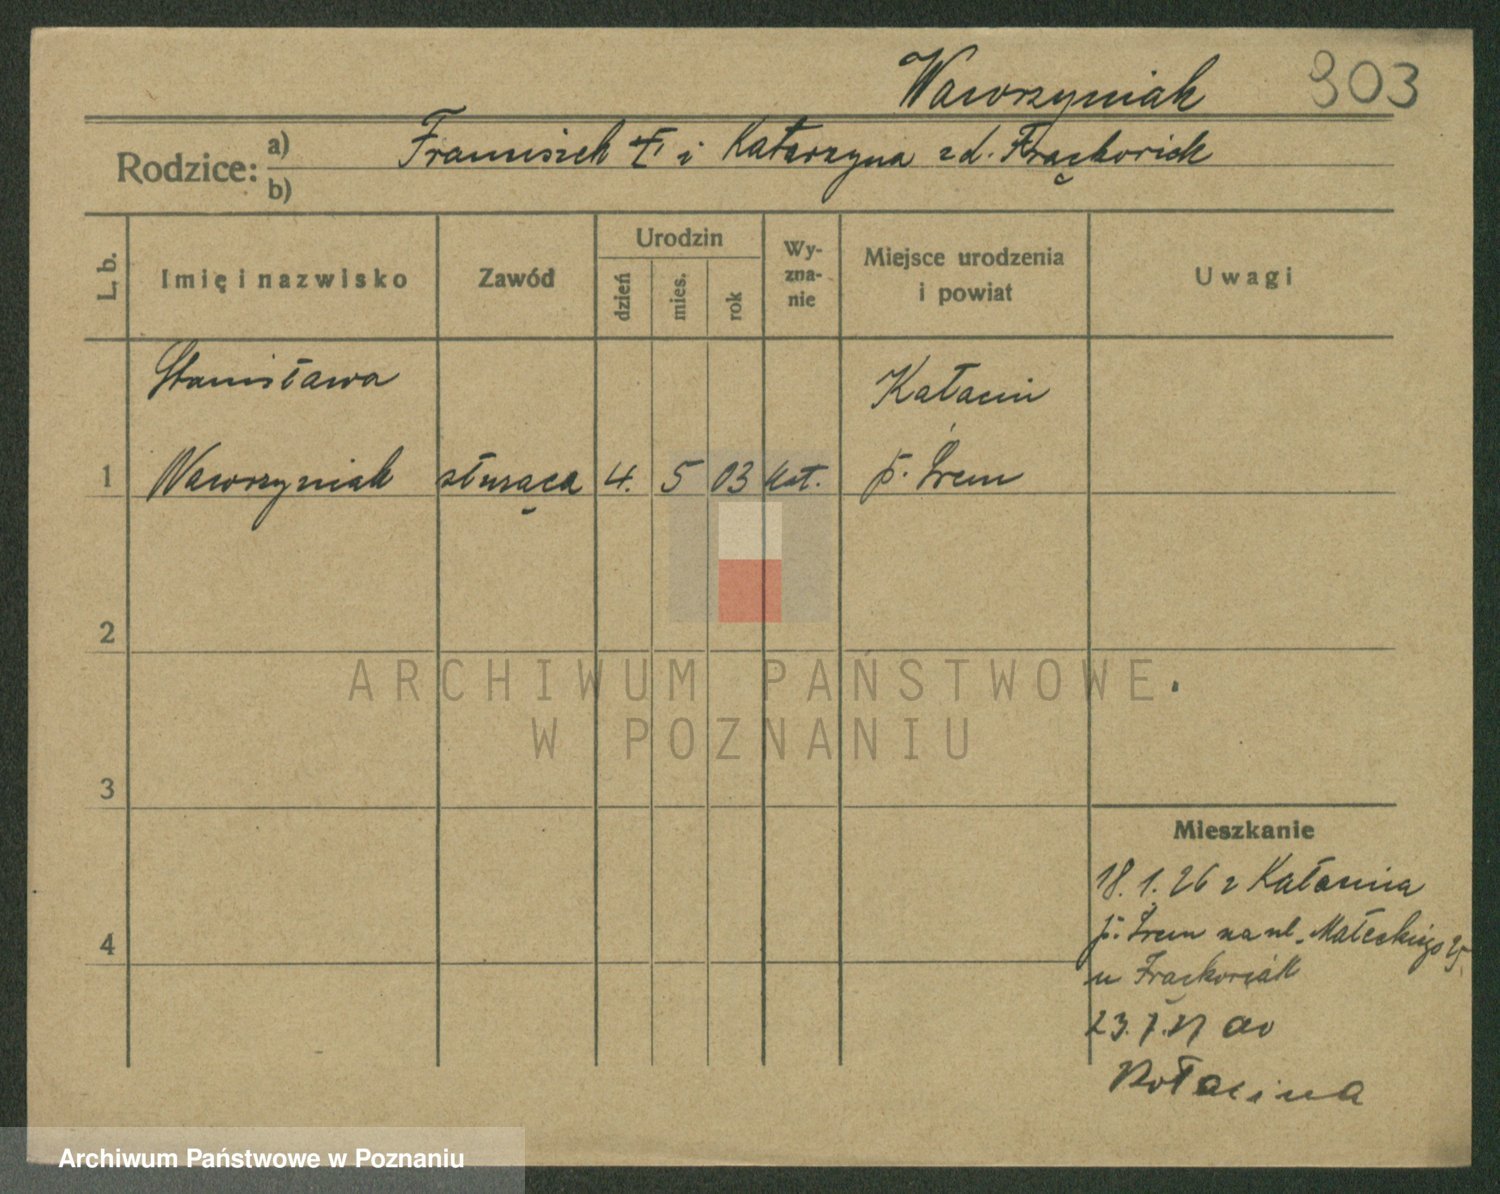 Wawrzyniak 903
Rodzice: a) Franciszek i Katarzyna z d. Frąckowiak
b)
L. b.
Imię i nazwisko
Zawód
Urodzin
dzień
mies.
rok
Wy-
zna-
nie
Miejsce urodzenia
i powiat
Uwagi
Stanisława
Katacin
1 Wawrzyniak służąca 4. 5 03 kat. p. Śrem
2
ARCHIWUM PAŃSTWOWE
W POZNANIU
3
Mieszkanie
18.1.26 z
4
p. Śrem na ul. Małeckiego 25
u Frąckowiak
do
Archiwum Państwowe w Poznaniu